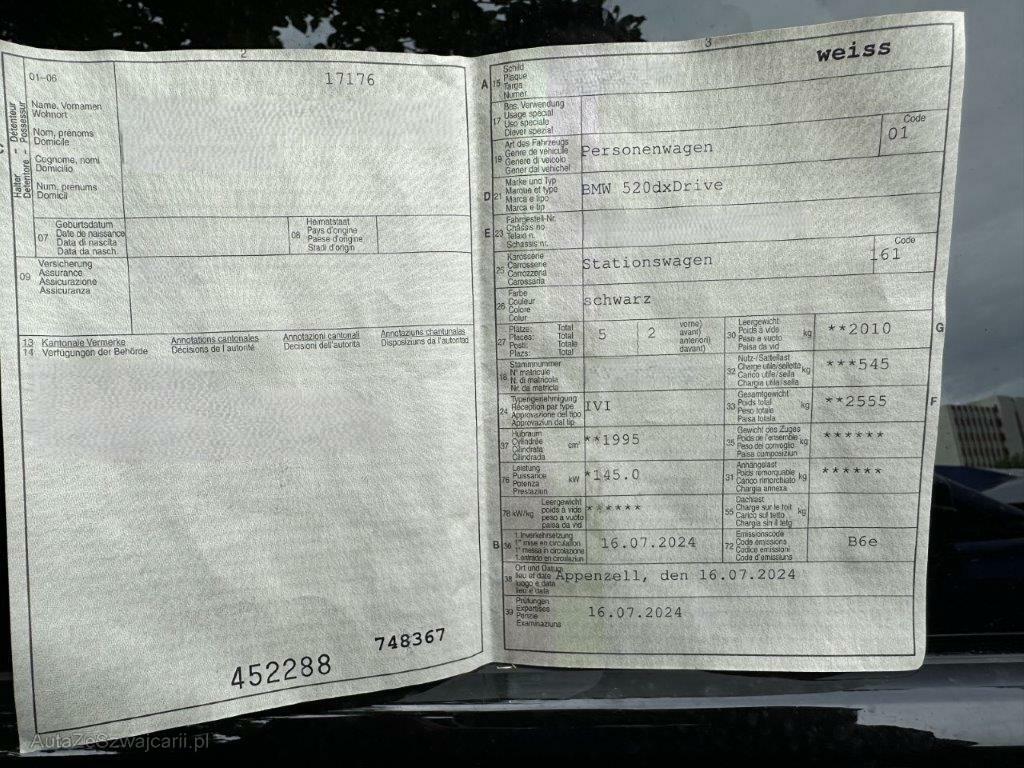 2
01-06
17176
Halter - Détenteur
Detentore - Possessur
Name, Vornamen
Wohnort
Nom, prénoms
Domicile
Cognome, nomi
Domicilio
Num, prenums
Domicil
07
Geburtsdatum
Date de naissance
Data di nascita
Data da nasch.
08
Heimatstaat
Pays d'origine
Paese d'origine
Stadi d'origin
09
Versicherung
Assurance
Assicurazione
Assicuranza
13 Kantonale Vermerke
14 Verfügungen der Behörde
Annotations cantonales
Décisions de l'autorité
Annotazioni cantonali
Decisioni dell'autorità
Annotaziuns chantunalas
Disposiziuns da l'autoritad
748367
452288
3
weiss
A 15
Schild
Plaque
Targa
Numer
17
Bes. Verwendung
Usage spécial
Uso speciale
Diever spezial
19
Art des Fahrzeugs
Genre de véhicule
Genere di veicolo
Gener dal vehichel
Personenwagen
Code
01
D 21
Marke und Typ
Marque et type
Marca e tipo
Marca e tip
BMW 520dxDrive
E 23
Fahrgestell-Nr.
Châssis no
Telaio n.
Schassis nr.
25
Karosserie
Carrosserie
Carrozzeria
Carossaria
Stationswagen
Code
161
26
Farbe
Couleur
Colore
Colur
schwarz
27
Plätze: Total
Places: Total
Posti: Totale
Plazs: Total
5
2
vorne)
avant)
anteriori)
davant)
30
Leergewicht
Poids à vide
Peso a vuoto
Paisa da vid
kg
**2010
G
18
Stammnummer
N° matricule
N. di matricola
Nr. da matricla
32
Nutz-/Sattellast
Charge utile/sellette
Carico utile/sella
Chargia utila/sella
kg
***545
24
Typengenehmigung
Réception par type
Approvazione del tipo
Approvaziun dal tip
IVI
33
Gesamtgewicht
Poids total
Peso totale
Paisa totala
kg
**2555
F
37
Hubraum
Cylindrée
Cilindrata
Cilindrada
cm³
**1995
35
Gewicht des Zuges
Poids de l'ensemble
Peso del convoglio
Paisa cumposiziun
kg
******
76
Leistung
Puissance
Potenza
Prestaziun
kW
*145.0
31
Anhängelast
Poids remorquable
Carico rimorchiato
Chargia annexa
kg
******
78 kW/kg
Leergewicht
poids à vide
peso a vuoto
paisa da vid
******
55
Dachlast
Charge sur le toit
Carico sul tetto
Chargia sin il tetg
kg
B 36
1. Inverkehrsetzung
1re mise en circulation
1a messa in circolazione
1. entrada en circulaziun
16.07.2024
72
Emissionscode
Code émissions
Codice emissioni
Code d'emissiuns
B6e
38
Ort und Datum
lieu et date
luogo e data
lieu e data
Appenzell, den 16.07.2024
39
Prüfungen
Expertises
Perizie
Examinaziuns
16.07.2024
AutaZeSzwajcarii.pl